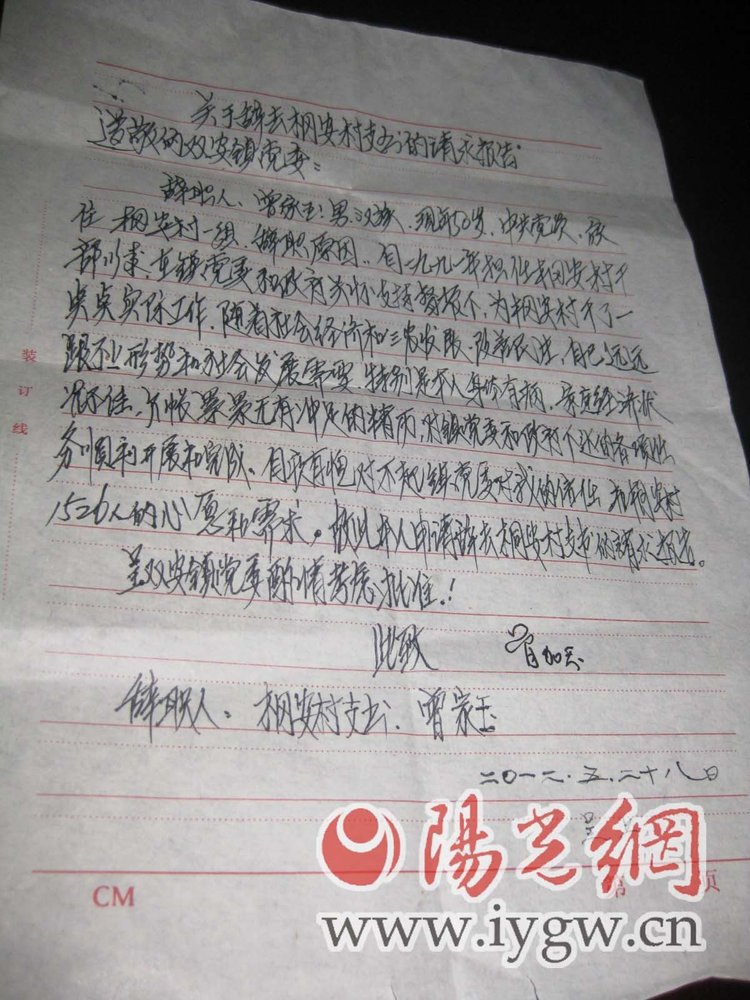 关于辞去桐安村支书的请求报告
尊敬的双安镇党委:
辞职人、曾家玉:男.汉族、现年50岁、中共党员、
住桐安村一组、辞职原因、自一九九一年担任桐安村干
部以来在镇党委和政府关怀支持
点点实际工作.随着社会经济和 发展、改善民生,自己远远
跟不上形势和社会发展需要.特别是本人身体有病.家庭经济状
况不佳. 无有冲足的精 对镇党委和政府 的各项
务顺利开展和完成. 对不起镇党委对我的信任 和桐安村
1526人的心愿和需求。故此本人申请辞去桐安村支书的请求报告。
呈双安镇党委酌情考虑批准.!
此致
辞职人:桐安村支书、曾家玉
二〇一二.五.二十八日
装订线
CM
第 页
陽光網
www.iygw.cn